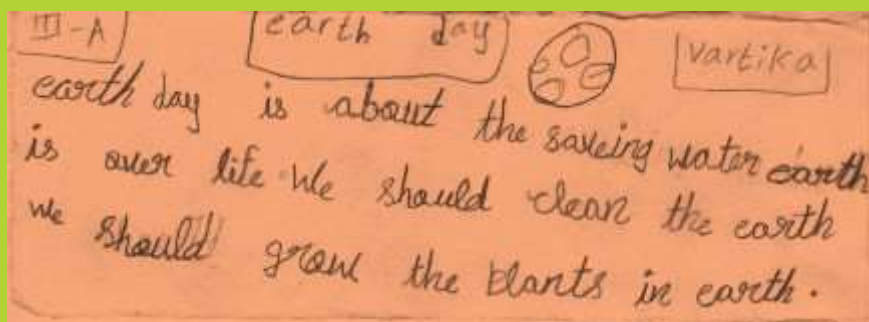 III-A earth day vartika
earth day is about the saveing water earth
is over life We should clean the earth
we should grow the plants in earth.